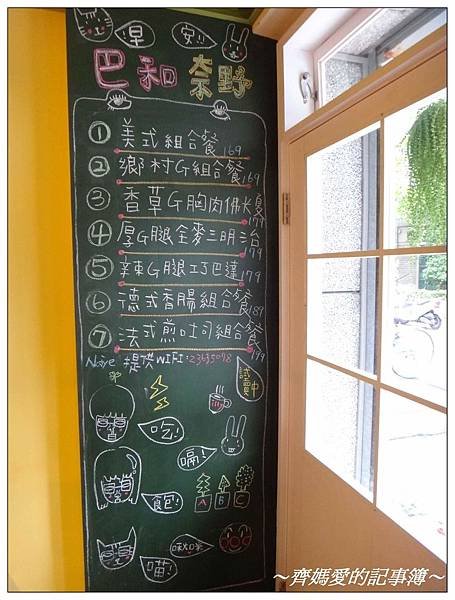 早 安!
巴和奈野
① 美式組合餐 169
② 鄉村G組合餐 169
③ 香草G胸肉佛卡夏 179
④ 厚G腿全麥三明治 179
⑤ 辣G腿巧巴達 179
⑥ 德式香腸組合餐 189
⑦ 法式煎吐司組合餐 199
提供WIFI:23635098
試賣中
吃!
嗝!
飽!
A B C
喵!
～齊媽愛的記事簿～